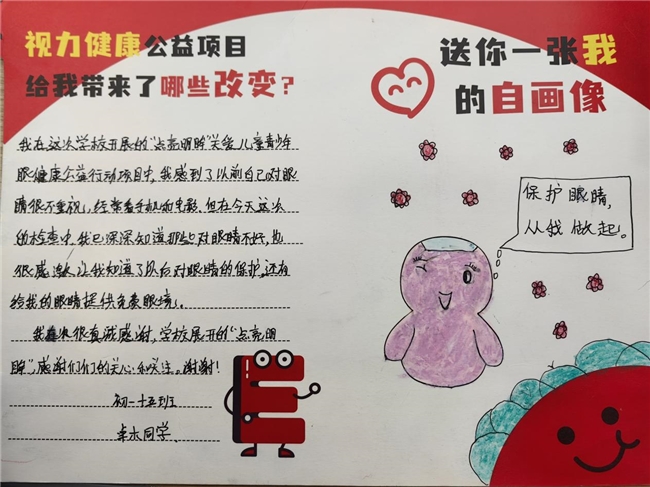 视力健康公益项目
给我带来了哪些改变?
我在这次学校开展的"点亮明眸"关爱儿童青少年
眼健康公益行动项目中,我感到了以前自己对眼
睛很不重视,经常看手机和电影,但在今天这次
的检查中,我已深深知道那些对眼睛不好,也
很感激,让我知道了以后对眼睛的保护,还有
给我的眼睛提供免费眼镜。
我很真诚感谢,学校展开的"点亮明
眸",感谢们们的关心和关注。谢谢!
初一十五班
卓水同学
送你一张我
的自画像
保护眼睛,
从我做起。